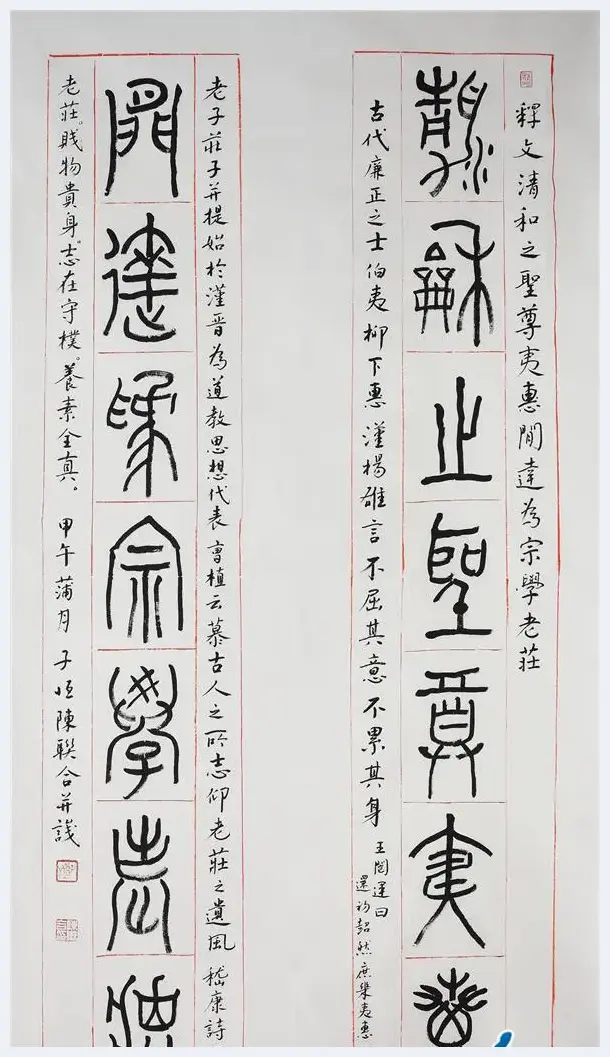 釋文清和之聖尊夷惠閒達為宗學老莊
清龢之聖尊夷惠
古代廉正之士伯夷柳下惠漢楊雄言不屈其意不累其身
王闓運曰
還初超然庶幾夷惠
老子莊子并提始於漢晉為道教思想代表曹植云慕古人之所志仰老莊之遺風嵇康詩
閒達為宗學老莊
老莊。賤物貴身。志在守樸。養素全真。甲午蒲月子恆陳聯合并識